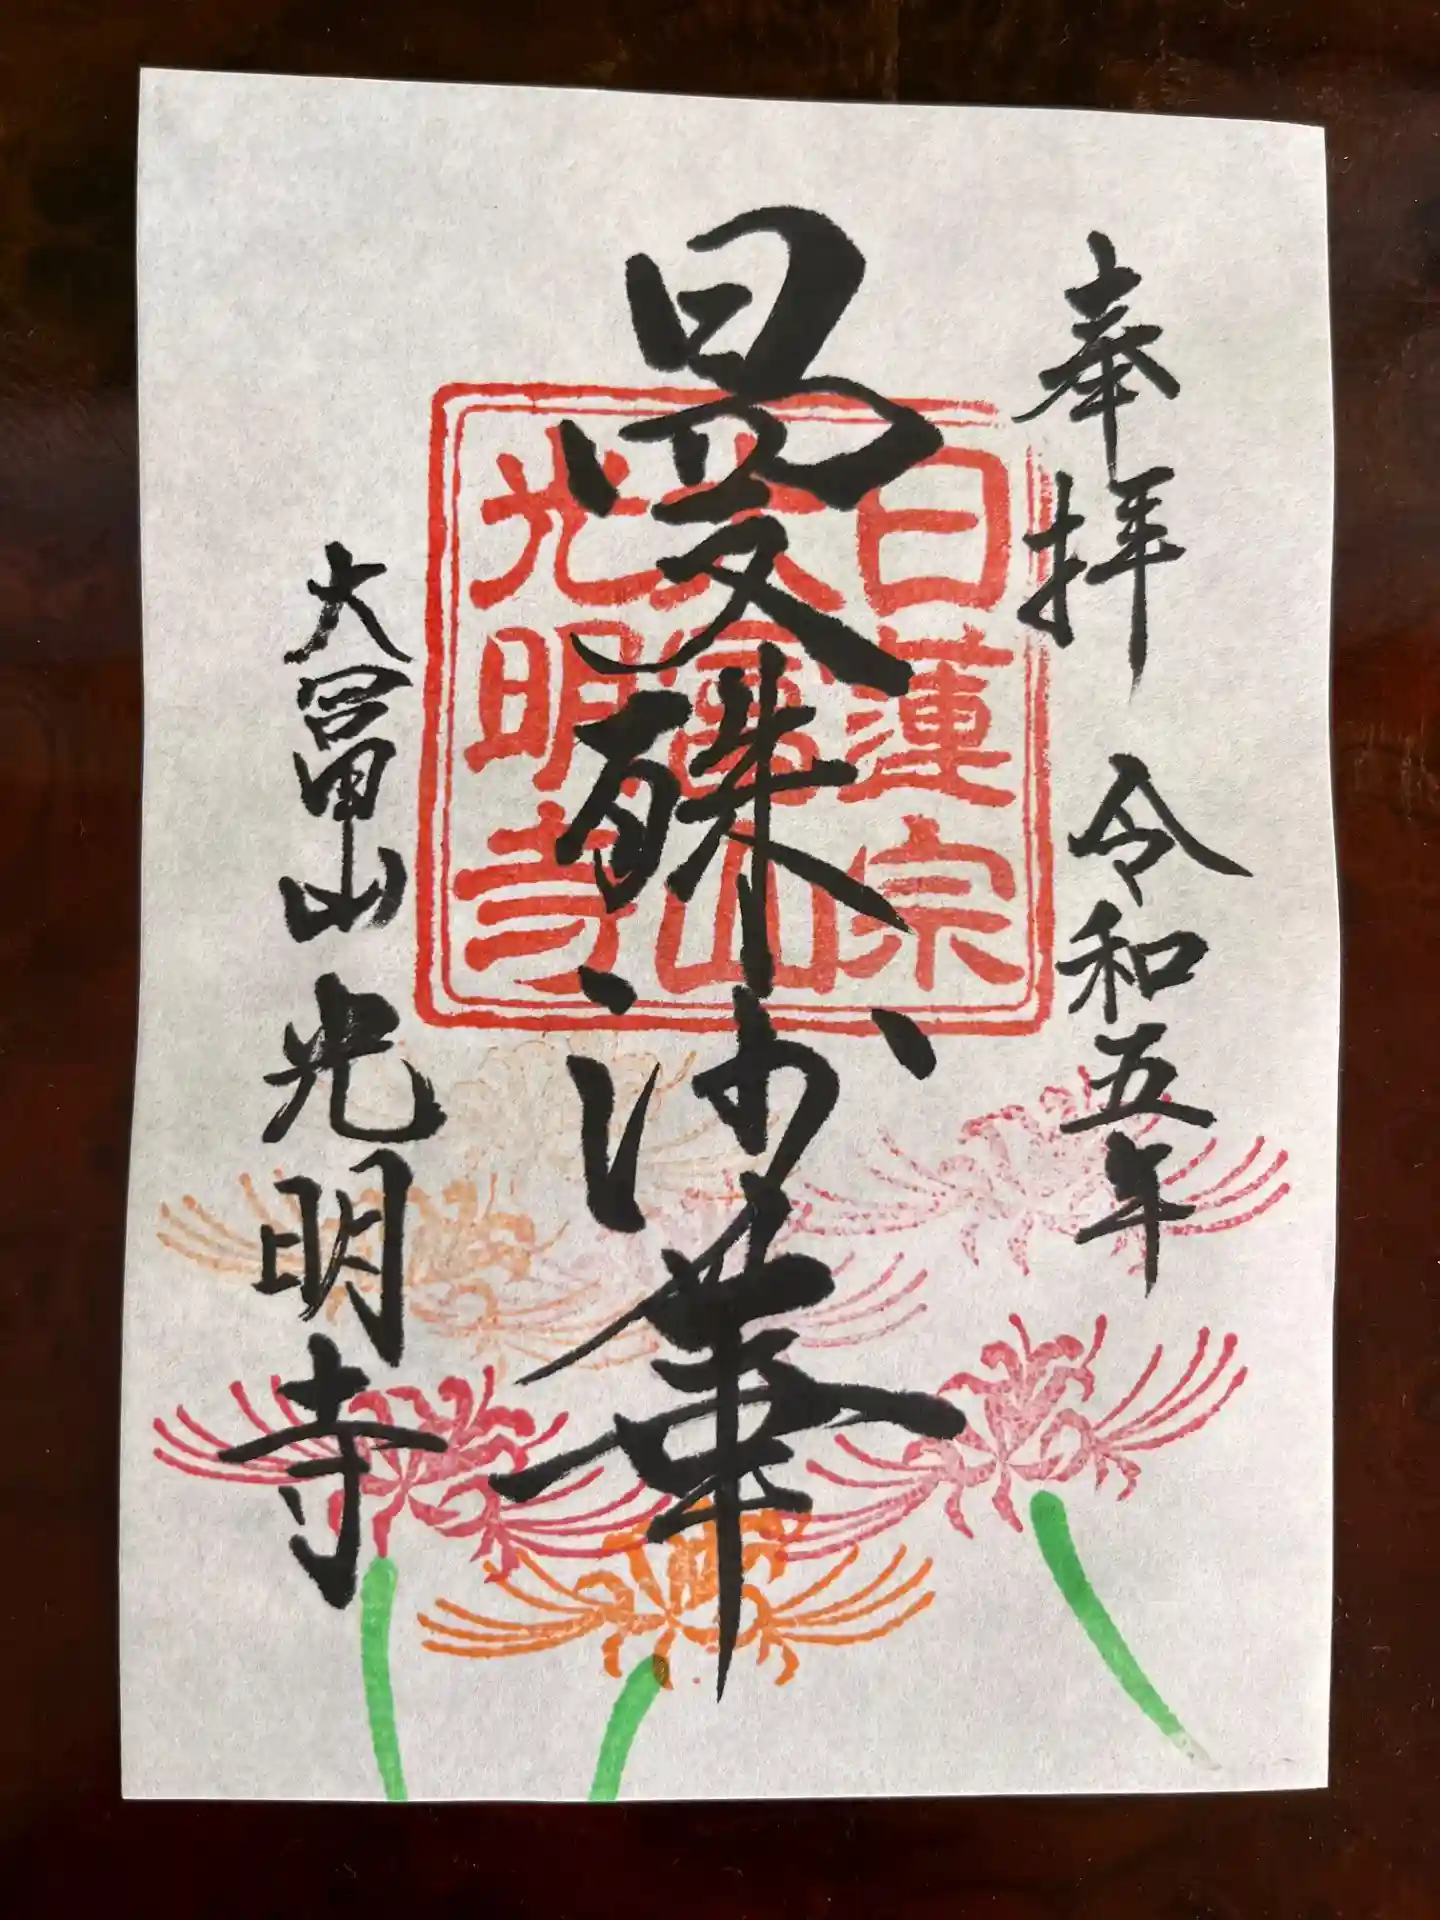 奉拝 令和五年
曼殊沙華
大冨山 光明寺
日蓮宗
大富山
光明寺